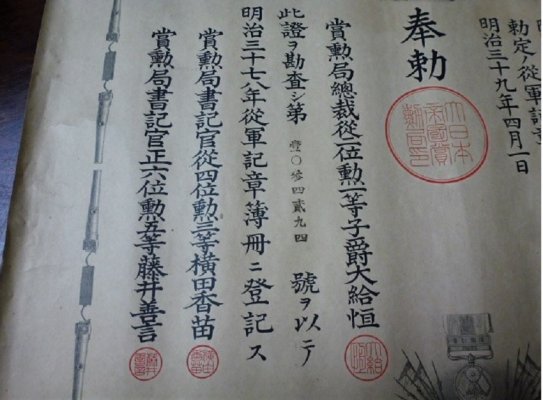 勅定ノ從軍記章
明治三十九年四月一日
奉勅
大日本帝國賞勳局印
賞勳局總裁從二位勳一等子爵大給恒
此證ヲ勘査シ第壹〇參四貳九四號ヲ以テ
明治三十七八年從軍記章簿冊ニ登記ス
賞勳局書記官從四位勳三等橫田香苗
賞勳局書記官正六位勳五等藤井善言